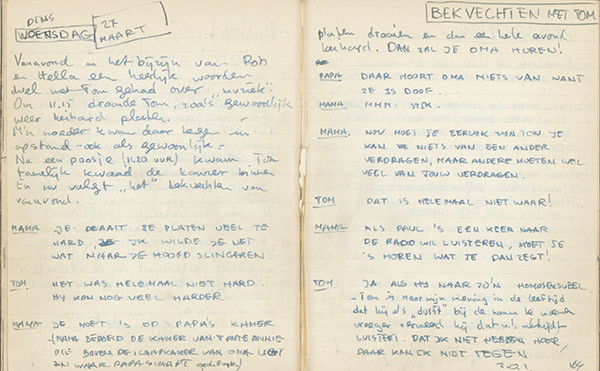 DINS
WOENSDAG 27 MAART
Vanavond in het bijzijn van Rob
en Hella een heerlijk woorden
duel met Tom gehad over "muziek".
Om 11.15 draaide Tom, zoa's gewoonlijk
weer keihard platen.
M'n moeder kwam daar tegen in
opstand - ook als gewoonlijk -
Na een poosje (11.20 uur) kwam Tom
tamelijk kwaad de kamer binnen
En nu volgt "het" bekvechten van
vanavond.
MAMA JE DRAAIT JE PLATEN VEEL TE
HARD, IK WILDE JE NET
WAT NAAR JE HOOFD SLINGEREN
TOM. HET WAS HELEMAAL NIET HARD.
HY KON NOG VEEL HARDER
MAMA JE MOET 'S OP PAPA'S KAMER
(MAMA BEDOELD DE KAMER VAN TANTE ANNIE
DIE BOVEN DE SLAAPKAMER VAN OMA LIGT
EN WAAR PAPA SLAAPT
BEKVECHTEN MET TOM
platen draaien en dan een hele avond
keihard. DAN ZAL JE OMA HOREN!
PAPA DAAR HOORT OMA NIETS VAN WANT
ZE IS DOOF.
MAMA MMM.
MAMA. NOU MOET JE EERLIJK ZYN TOM. JE
KAN ZE NIETS VAN EEN ANDER
VERDRAGEN, MAAR ANDERE MOETEN WEL
VEEL VAN JOUW VERDRAGEN.
TOM DAT IS HELEMAAL NIET WAAR!
MAMA ALS PAUL 'S EEN KEER NAAR
DE RADIO WIL LUISTEREN, MOET JE
'S HOREN WAT JE DAN ZEGT!
TOM JA ALS HY NAAR ZO'N HOMOSEKSUEEL
- Tom is naar mijn mening in de leeftijd
dat hij als "duift" bij de naam te noemen
vroeger
LUISTERT. DAT IK NIET HEBBEN HOOR
DAAR KAN IK NIET TEGEN!